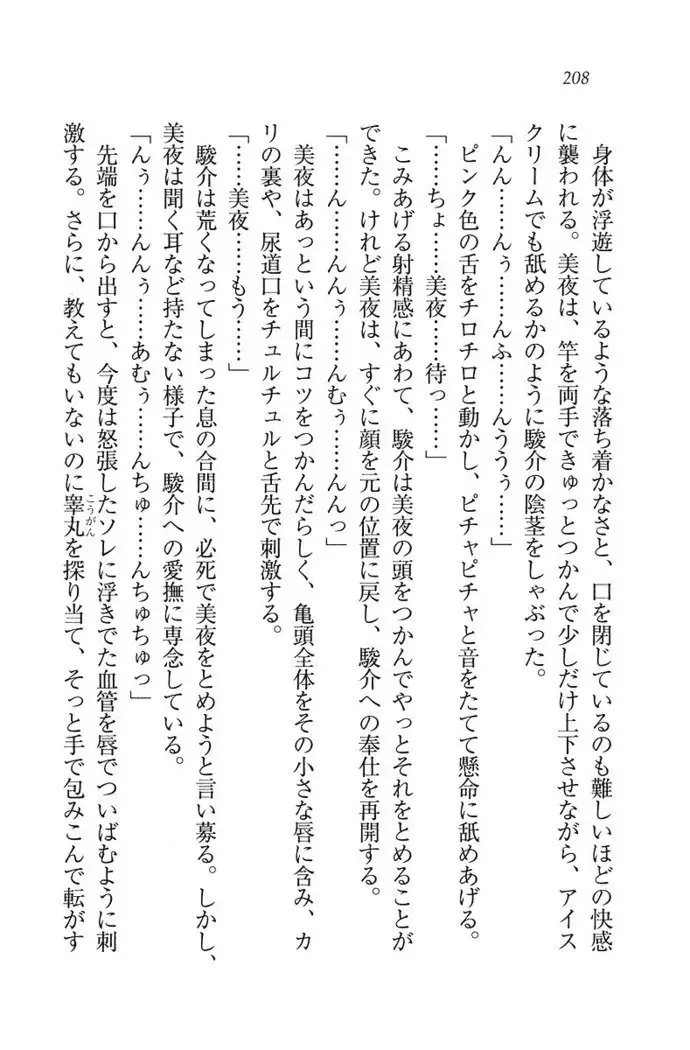 208
身体が浮遊しているような落ち着かなさと、口を閉じているのも難しいほどの快感
に襲われる。美夜は、竿を両手できゅっとつかんで少しだけ上下させながら、アイス
クリームでも舐めるかのように駿介の陰茎をしゃぶった。
「んん……んぅ……んふ……んううぅ……」
ピンク色の舌をチロチロと動かし、ピチャピチャと音をたてて懸命に舐めあげる。
「……ちょ……美夜……待っ……」
こみあげる射精感にあわて、駿介は美夜の頭をつかんでやっとそれをとめることが
できた。けれど美夜は、すぐに顔を元の位置に戻し、駿介への奉仕を再開する。
「……ん……んんぅ……んむぅ……んんっ」
美夜はあっという間にコツをつかんだらしく、亀頭全体をその小さな唇に含み、カ
リの裏や、尿道口をチュルチュルと舌先で刺激する。
「……美夜……もう……」
駿介は荒くなってしまった息の合間に、必死で美夜をとめようと言い募る。しかし、
美夜は聞く耳など持たない様子で、駿介への愛撫に専念している。
「んぅ……んんぅ……あむぅ……んちゅ……んちゅちゅっ」
先端を口から出すと、今度は怒張したソレに浮きでた血管を唇でついばむように刺
激する。さらに、教えてもいないのに睾丸こうがんを探り当て、そっと手で包みこんで転がす